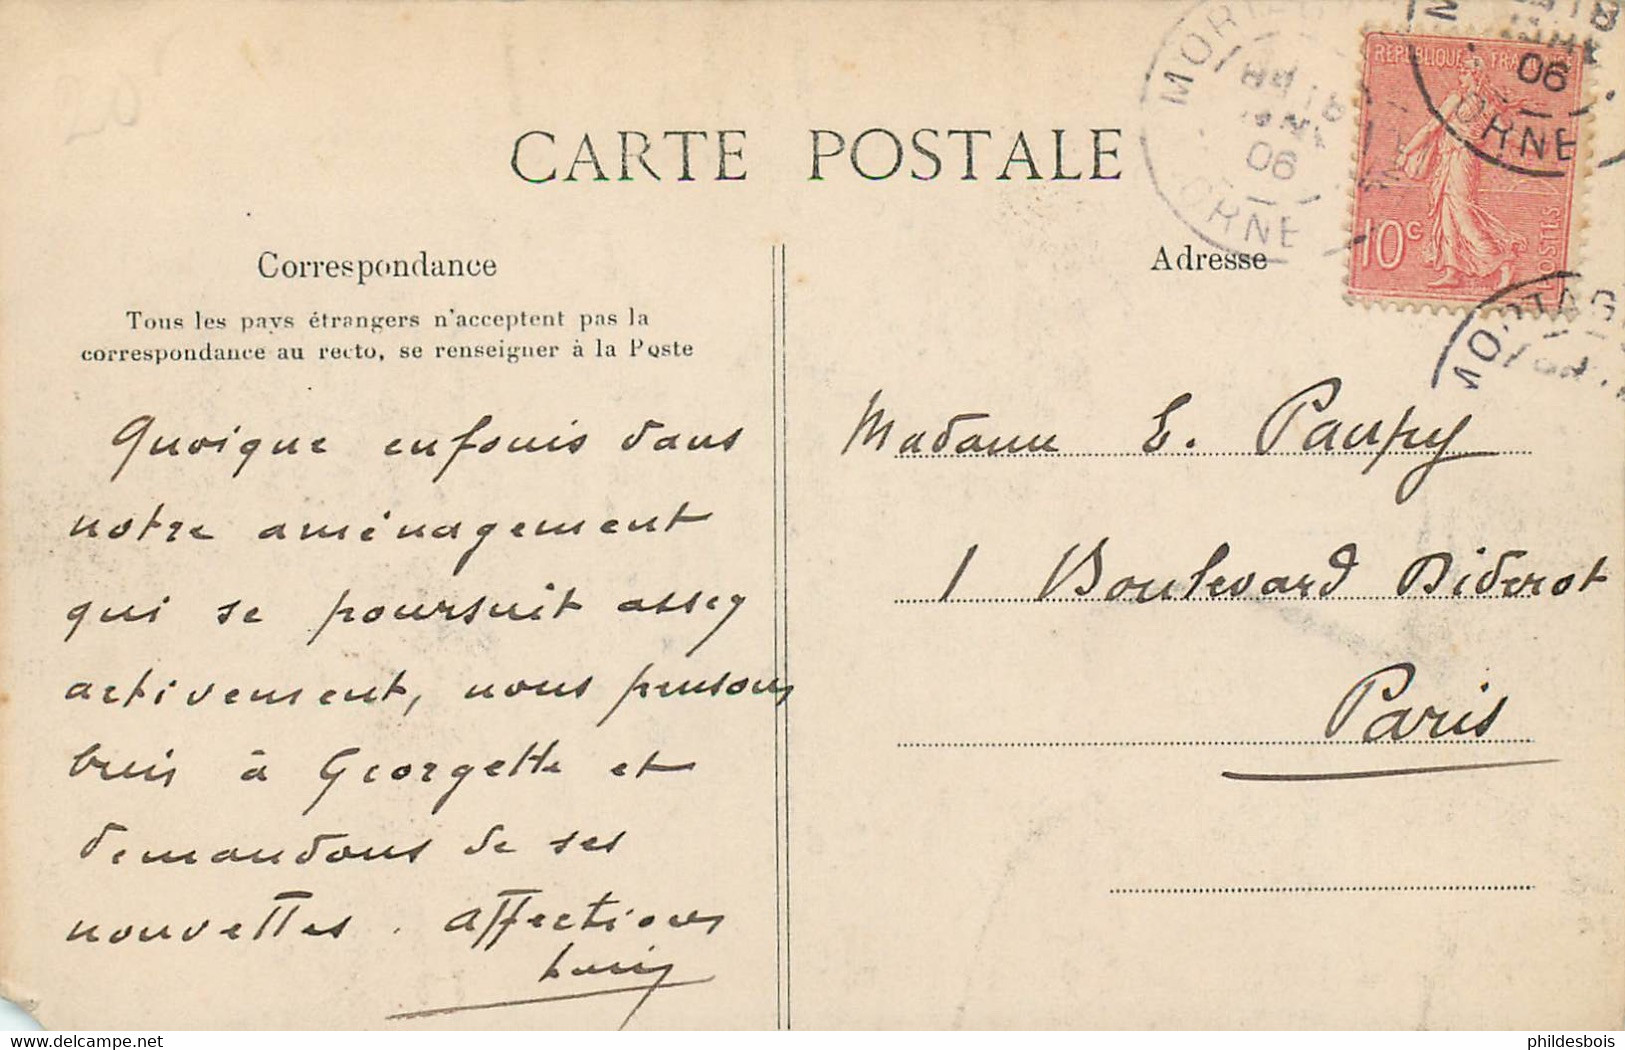 20
CARTE POSTALE
Correspondance
Tous les pays étrangers n'acceptent pas la
correspondance au recto, se renseigner à la Poste
Quoique enfouis dans
notre aménagement
qui se poursuit assez
activement, nous pensons
bien à Georgette et
demandons de ses
nouvelles. Affections
Adresse
Madame E. Paupy
1 Boulevard Diderot
Paris
REPUBLIQUE FRANC
10c
POSTES
MORTAG
06
ORNE
06
ORNE
MORTAG
delcampe.net
phildesbois